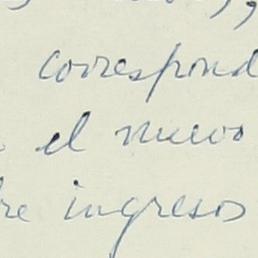 correspond
el nuevo
re ingresos